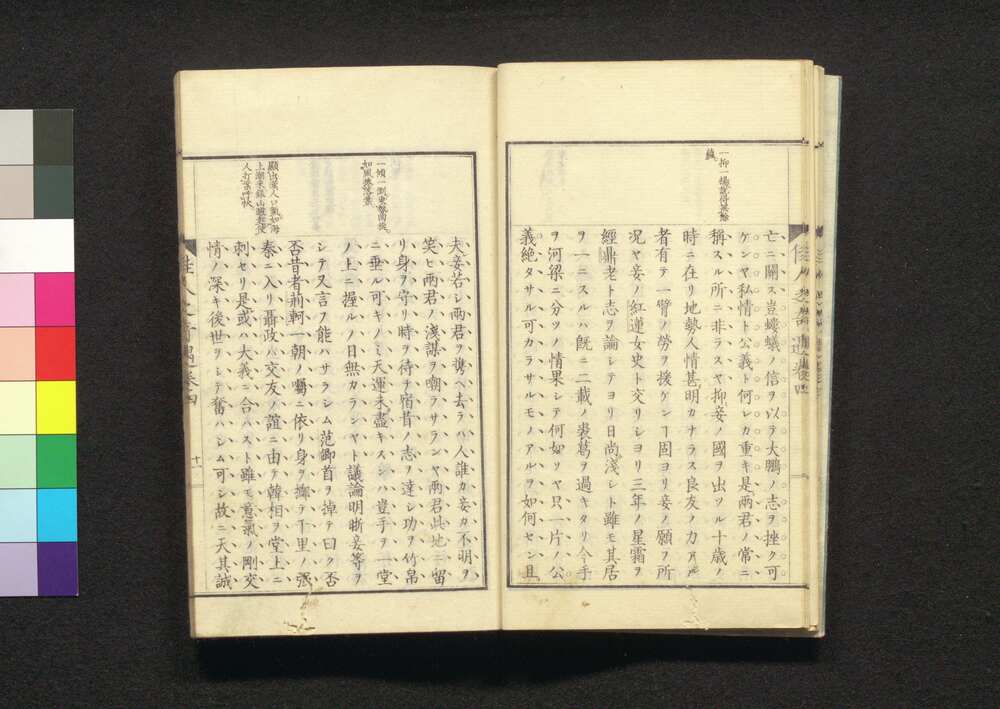 一抑一揚説得無餘
蘊
亡ニ關ス豈螻蟻ノ信ヲ以テ大鵬ノ志ヲ挫ク可
ケンヤ私情ト公義ト何レカ重キ是兩君ノ常ニ
稱スル所ニ非ラスヤ抑妾ノ國ヲ出ツル十歳ノ
時ニ在リ地勢人情甚明カナラス良友ノ力アル
者有テ一臂ノ勞ヲ援ケンヿ固ヨリ妾ノ願ヲ所
况ヤ妾ノ紅蓮女史ト交リシヨリ三年ノ星霜ヲ
經鼎老ト志ヲ論シテヨリ日尚淺シト雖モ其居
ヲ一ニスルハ既ニ二載ノ裘葛ヲ過キタリ今手
ヲ河梁ニ分ツノ情果シテ何如ソヤ只一片ノ公
義絶タサル可カラサルモノアルヲ如何セン且
佳人之奇遇卷四
一傾一測更盤回後
如風捲落葉
顯出漢人口氣如海
上潮來銀山
人
夫妾若シ兩君ヲ携ヘ去ラハ人誰カ妾カ不明ヲ
笑ヒ兩君ノ淺謀ヲ嘲ラサランヤ兩君此地ニ留
リ身ヲ守リ時ヲ待テ宿昔ノ志ヲ達シ功ヲ竹帛
ニ垂ル可キノミ天運未盡キスンハ豈手ヲ一堂
ノ上ニ握ルノ日無カランヤト議論明晰妾等ヲ
シテ又言フ能ハサラシム范卿首ヲ掉テ曰ク否
否昔者荊軻一朝ノ囑ニ依リ身ヲ擲テ千里ノ強
秦ニ入リ聶政ハ交友ノ誼ニ由テ韓相ヲ堂上ニ
刺セリ是或ハ大義ニ合ハスト雖モ意氣ノ剛交
情ノ深キ後世ヲシテ奮ハシム可シ故ニ天其誠
佳人之奇遇卷四
十一